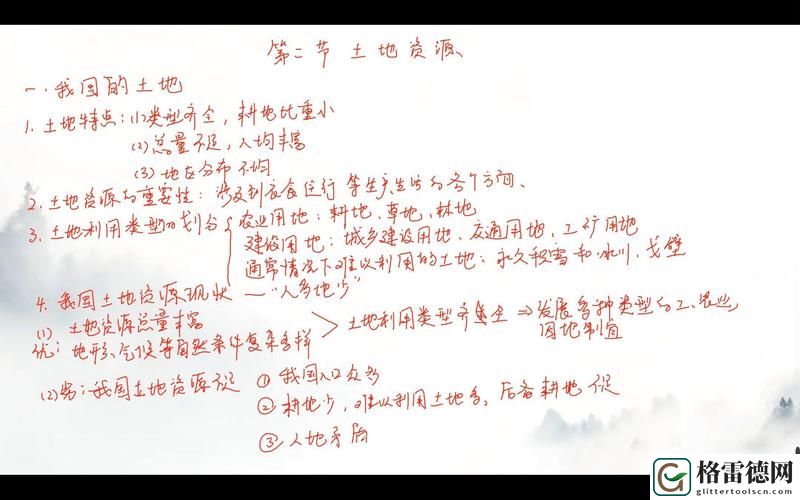 第二节 土地资源
一.我国的土地
1. 土地特点:(1)类型齐全,耕地比重小
(2)总量不足,人均丰富
(3)地区分布不均
2. 土地资源的重要性:涉及到衣食住行等生产生活的各个方面、
3. 土地利用类型的划分 农业用地:耕地、草地、林地
建设用地:城乡建设用地、交通用地、工矿用地
通常情况下难以利用的土地:永久积雪和冰川、戈壁
4. 我国土地资源现状 — "人多地少"
(1) 土地资源总量丰富
优:地形、气候等自然条件复杂多样
土地利用类型齐全 ⇒ 发展各种类型的工、农业,
因地制宜
(2)劣:我国土地资源 ① 我国人口众多
② 耕地少,难以利用土地多,后备耕地
③ 人地矛盾
格雷德网
glittertoolscn.com